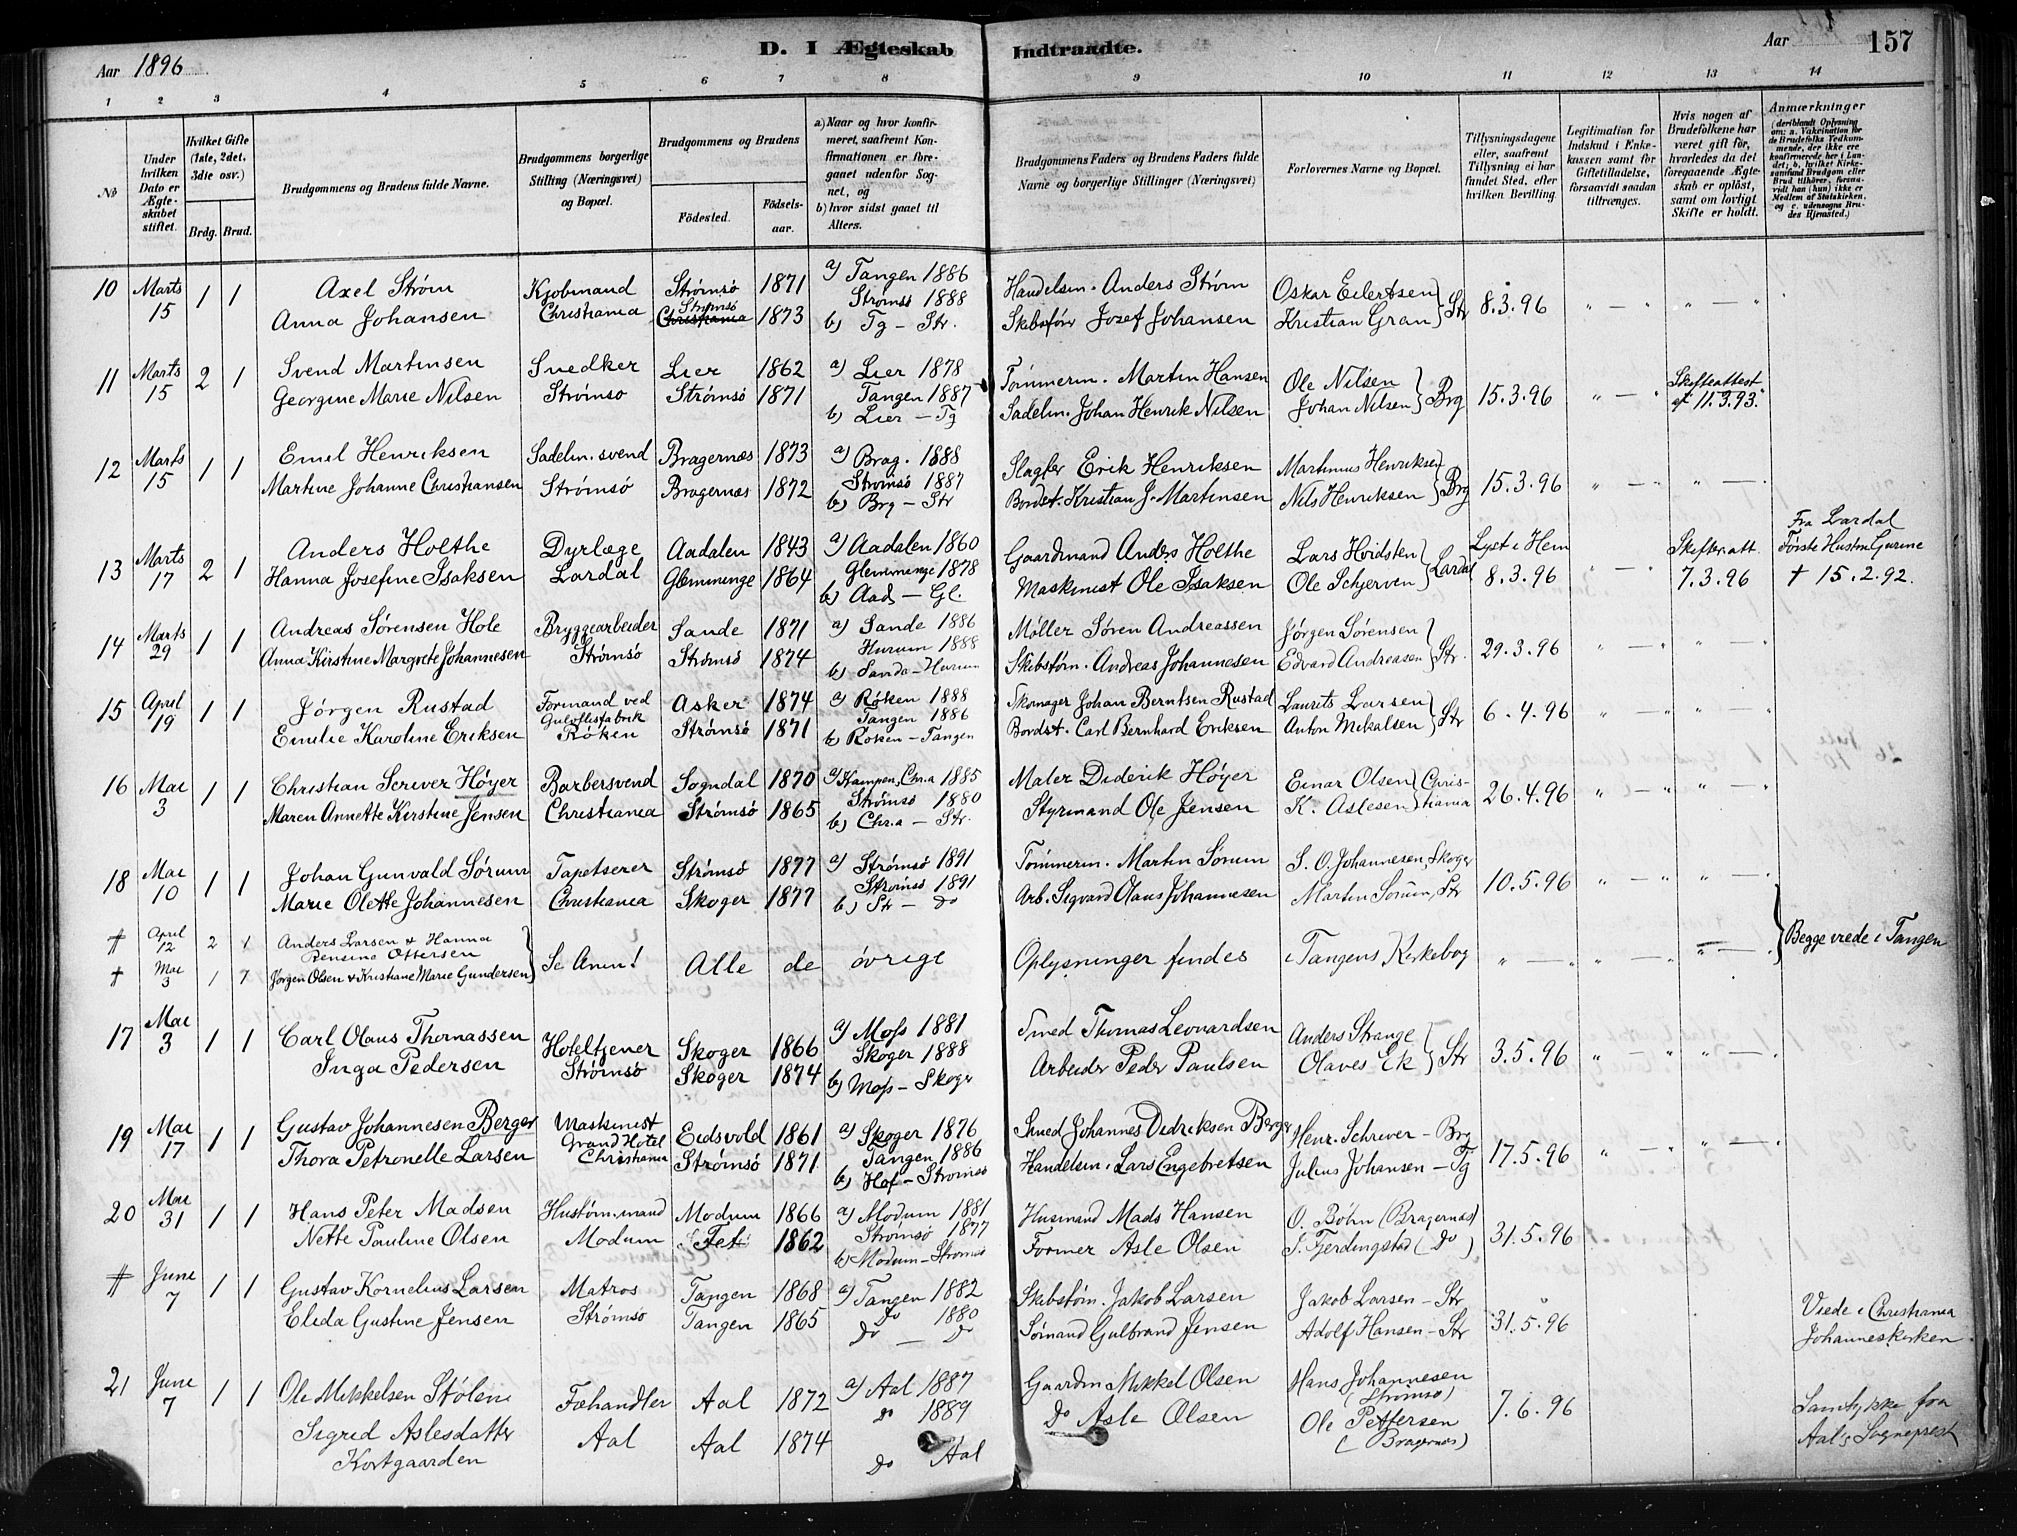 Aar 1896
D. I Ægteskab Indtraadte.
Aar 157
1 2 3 4 5 6 7 8 9 10 11 12 13 14
No
Under hvilken Dato er Ægteskabet stiftet.
Hvilket Gifte (1ste, 2det, 3die osv.)
Brdg. Brud.
Brudgommens og Brudens fulde Navne.
Brudgommens borgerlige Stilling (Næringsvei) og Bopæl.
Brudgommens og Brudens
Födested. Födselsaar.
a) Naar og hvor konfirmeret, saafremt Konfirmationen er foregaaet udenfor Sognet, og
b) hvor sidst gaaet til Alters.
Brudgommens Faders og Brudens Faders fulde Navne og borgerlige Stillinger (Næringsvei)
Forlovernes Navne og Bopæl.
Tillysningsdagene eller, saafremt Tillysning ei har fundet Sted, efter hvilken Bevilling.
Legitimation for Indskud i Enkekassen samt for Giftetilladelse, forsaavidt saadan tiltrænges.
Hvis nogen af Brudefolkene har været gift før, hvorledes da det foregaaende Ægteskab er oplöst, samt om lovligt Skifte er holdt.
Anmærkninger (deriblandt Oplysning om: a. Vakcination for de Brudefolks Vedkommende, der ikke ere konfirmerede her i Landet; b. hvilket Kirkesamfund Brudgom eller Brud tilhörer, forsaavidt han (hun) ikke er Medlem af Statskirken, og c. udensogns Brudes Hjemsted.)
10 Marts 15 1 1 Axel Strøm Kjøbmand Strømsö 1871 a) Tangen 1886 Handelsm. Anders Strøm Oskar Eilertsen Str 8.3.96 " — " " — "
Anna Johansen Christiania Strømsö Christiania 1873 Strømsö 1888 b) Tg – Str. Skibsfører Josef Johansen Kristian Gran
11 Marts 15 2 1 Svend Martinsen Snedker Lier 1862 a) Lier 1878 Tømmerm. Martin Hansen Ole Nilsen Brg 15.3.96 " — " Skifteattest af 11.3.93.
Georgine Marie Nilsen Strømsö Strømsö 1871 Tangen 1887 b) Lier – Tg Sadelm. Johan Henrik Nilsen Johan Nilsen
12 Marts 15 1 1 Emil Henriksen Sadelm. svend Bragernæs 1873 a) Brag. 1888 Slagter Erik Henriksen Martinius Henriksen Brg 15.3.96 " — " " — "
Martine Johanne Christiansen Strømsö Bragernæs 1872 Strømsö 1887 b) Brg – Str Bordst. Kristian J. Martinsen Nils Henriksen
13 Marts 17 2 1 Anders Holthe Dyrlæge Aadalen 1843 a) Aadalen 1860 Gaardmand Anders Holthe Lars Hvidsten Lardal Lyst i Hem 8.3.96 " — " Skifteratt. 7.3.96 Fra Lardal Første Hustru Gurine † 15.2.92.
Hanna Josefine Isaksen Lardal Glemminge 1864 Glemminge 1878 b) Aad – Gl. Maskinist Ole Isaksen Ole Schjerven
14 Marts 29 1 1 Andreas Sørensen Hole Bryggearbeider Sande 1871 a) Sande 1886 Møller Søren Andreassen Jørgen Sørensen Str. 29.3.96 " — " " — "
Anna Kirstine Margrete Johannesen Strømsö Strømsö 1874 Hurum 1888 b) Sande – Hurum Skibstøm. Andreas Johannesen Edvard Andreasen
15 April 19 1 1 Jörgen Rustad Formand ved Gulvflisfabrik Asker 1874 a) Røken 1888 Skomager Johan Berntsen Rustad Laurits Larsen Str 6.4.96 " — " " — "
Emilie Karoline Eriksen Røken Strømsö 1871 Tangen 1886 b) Røken – Tangen Bordst. Carl Bernhard Eriksen Anton Mikalsen
16 Mai 3 1 1 Christian Scriver Høyer Barbersvend Sogndal 1870 a) Kampen, Chr.a 1885 Maler Diderik Høyer Einar Olsen Christiania 26.4.96 " — " " — "
Maren Annette Kirstine Jensen Christiania Strømsö 1865 Strømsö 1880 b) Chr.a – Str. Styrmand Ole Jensen K. Aslesen
18 Mai 10 1 1 Johan Gunvald Sørum Tapetserer Strømsö 1877 a) Strømsö 1891 Tømmerm. Martin Sørum S. O. Johannesen, Skoger 10.5.96 " — " " — "
Marie Olette Johannesen Christiania Skoger 1877 Strømsö 1891 b) Str – Do Arb. Sigvard Olaus Johannesen Martin Sørum, Str
# April 12 2 1 Anders Larsen & Hanna Rensine Ottersen Se Anm! Alle de øvrige Oplysninger findes i Tangens Kirkebog " — " " — " Begge viede i Tangen
# Mai 3 1 1 Jørgen Olsen & Kristiane Marie Gundersen
17 Mai 3 1 1 Carl Olaus Thomassen Hoteltjener Skoger 1866 a) Moss 1881 Smed Thomas Leonardsen Anders Strange Str 3.5.96 " — " " — "
Inga Pedersen Strømsö Skoger 1874 Skoger 1888 b) Moss – Skoger Arbeider Peder Paulsen Olaves Ek
19 Mai 17 1 1 Gustav Johannesen Berger Maskinist Grand Hotel Eidsvold 1861 a) Skoger 1876 Smed Johannes Didriksen Berger Henr. Schriver – Brg 17.5.96 " — " " — "
Thora Petronelle Larsen Christiania Strømsö 1871 Tangen 1886 b) Hof – Strømsö Handelsm. Lars Engebretsen Julius Johansen – Tg
20 Mai 31 1 1 Hans Peter Madsen Hustøm.mand Modum 1866 a) Modum 1881 Husmand Mads Hansen O. Bøhn (Bragernæs) 31.5.96
Nette Pauline Olsen Modum Fet 1862 Strømsö 1877 b) Modum – Strømsö Former Asle Olsen T. Fjerdingstad (Do)
# June 7 1 1 Gustav Kornelius Larsen Matros Tangen 1868 a) Tangen 1882 Skibstøm. Jakob Larsen Jakob Larsen – Str 31.5.96 Viede i Christiania Johanneskirken
Elida Gustine Jensen Strømsö Tangen 1865 Do 1880 Do — Do Sømand Gulbrand Jensen Adolf Hansen – Str
21 June 7 1 1 Ole Mikkelsen Stølen Fæhandler Aal 1872 a) Aal 1887 Gaardm Mikkel Olsen Hans Johannesen (Strømsö) 7.6.96 Samtykke fra Aals Sogneprest
Sigrid Aslesdatter Kortgaarden Aal Aal 1874 Do 1889 Do Aal Do Asle Olsen Ole Pettersen (Bragernæs)